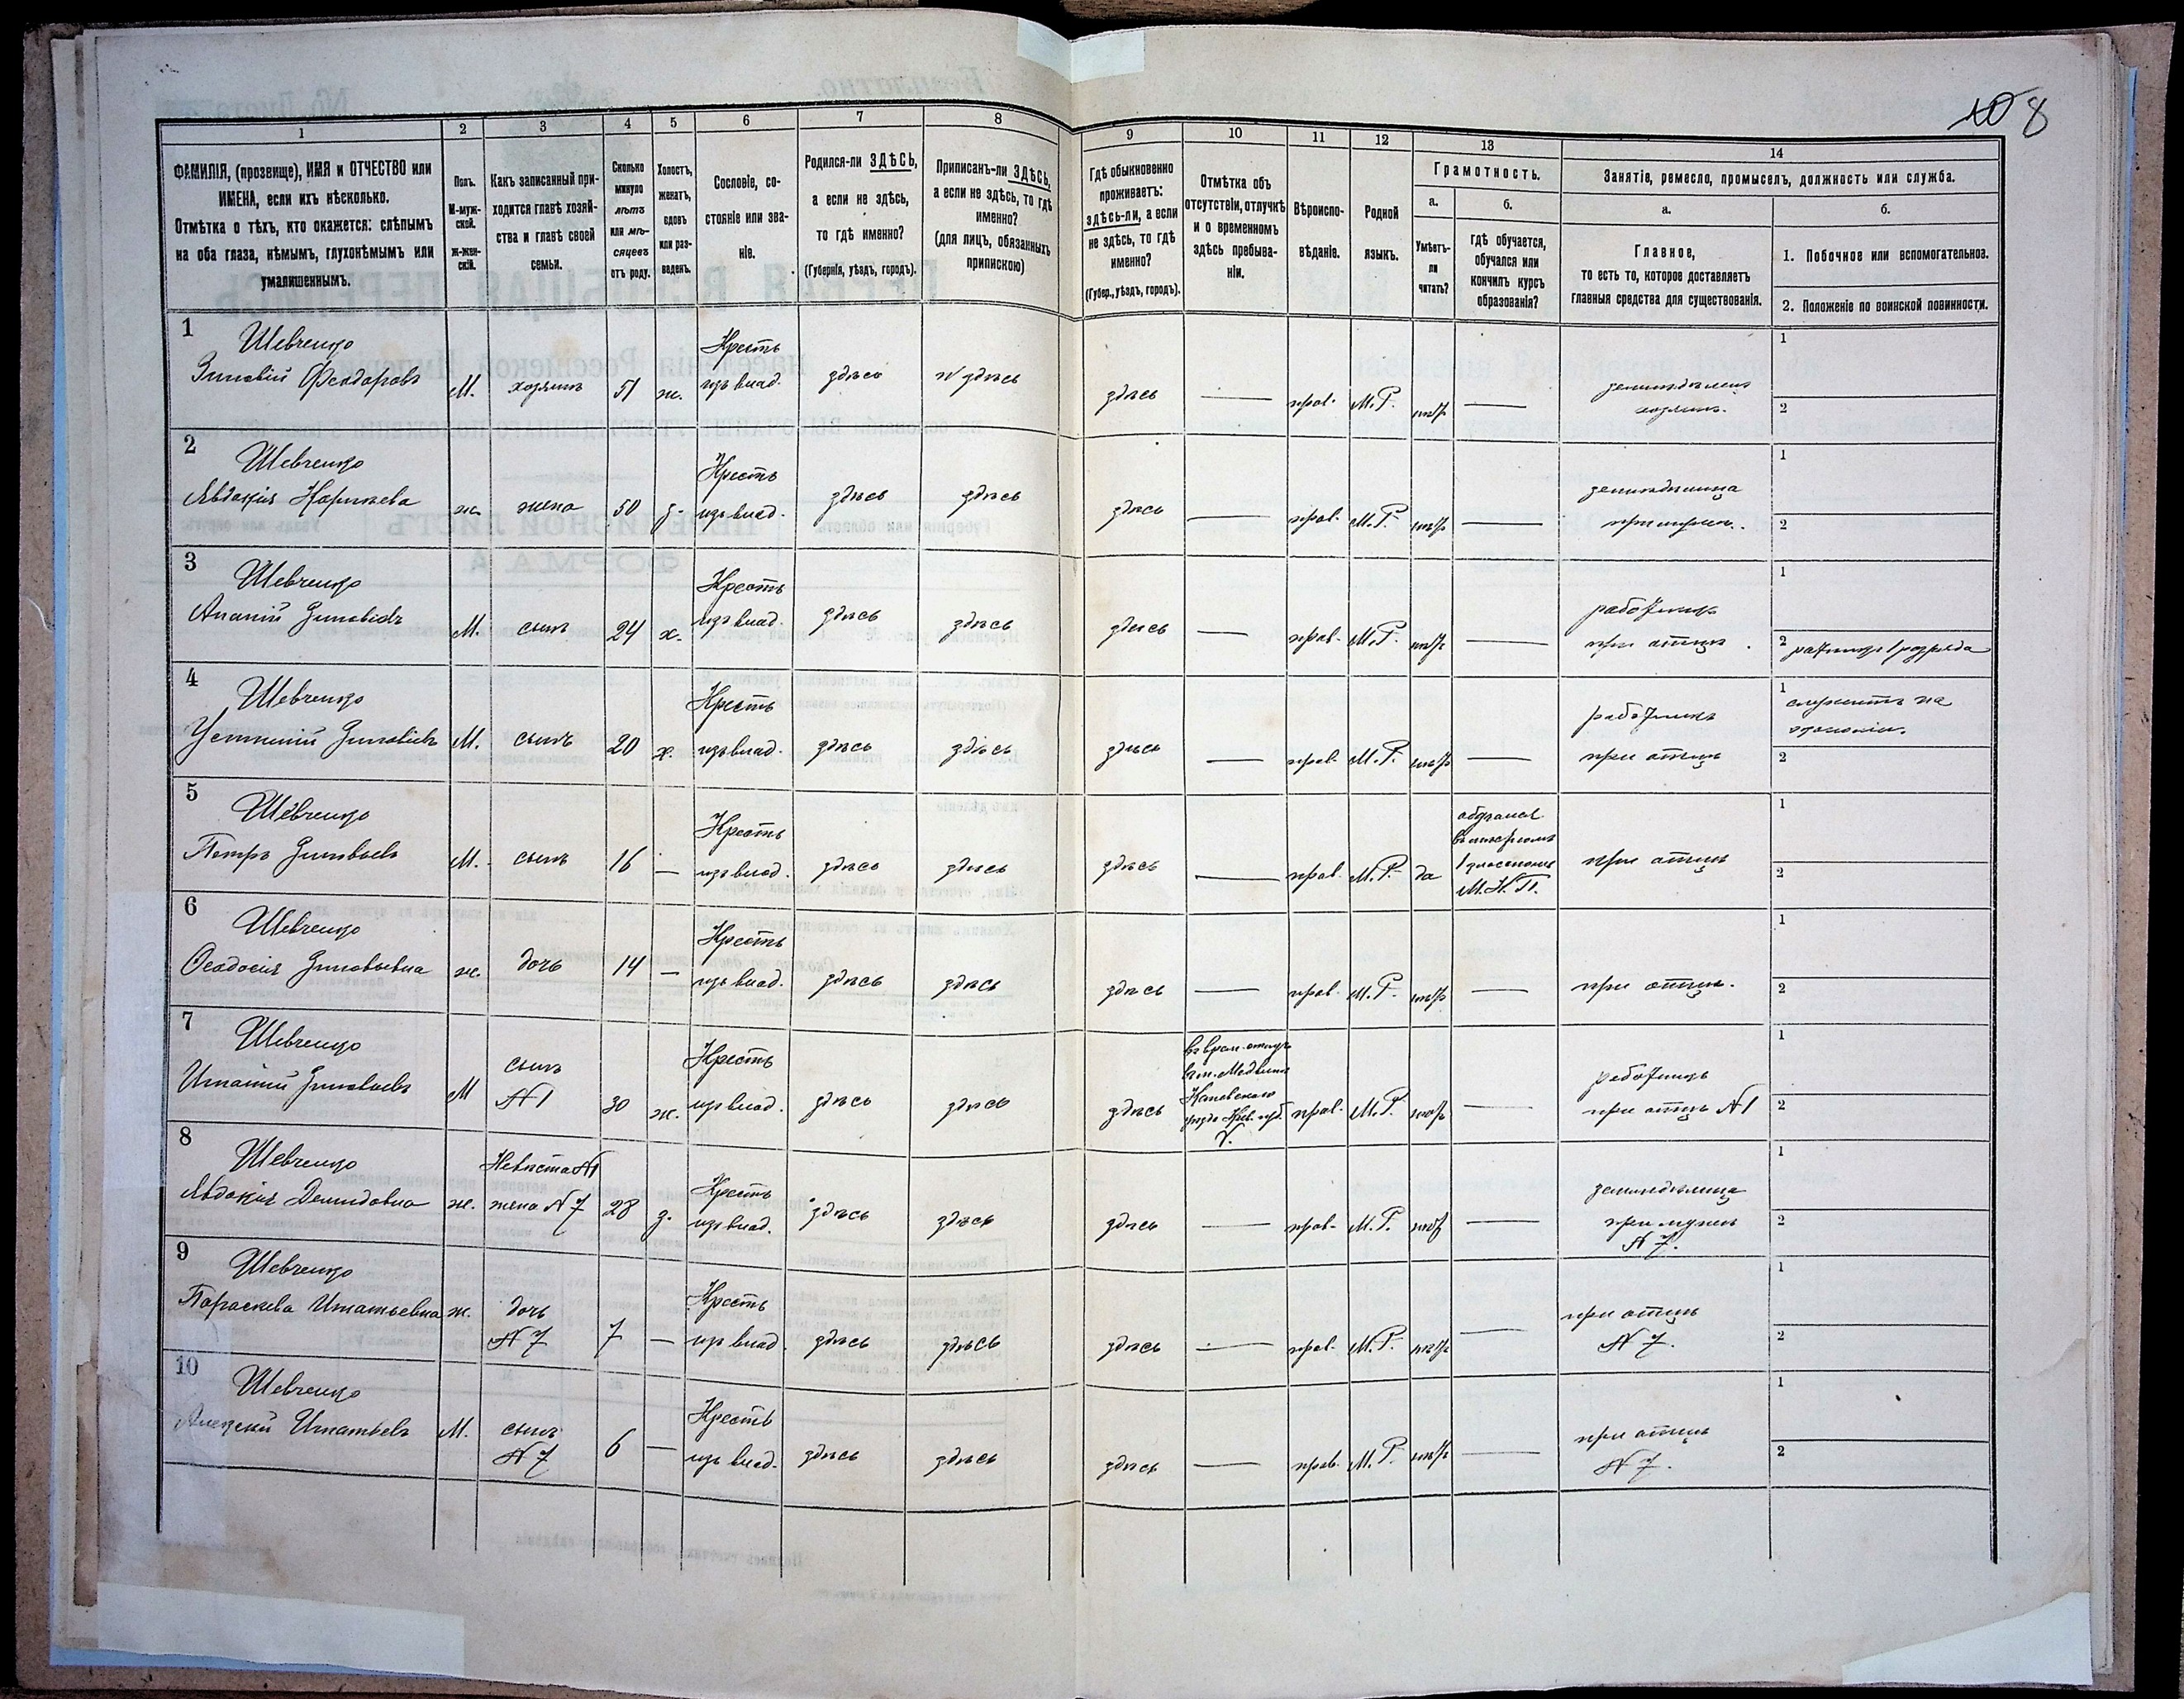 108
1 2 3 4 5 6 7 8 9 10 11 12 13 14
ФАМИЛІЯ, (прозвище), ИМЯ и ОТЧЕСТВО или
ИМЕНА, если ихъ нѣсколько.
Отмѣтка о тѣхъ, кто окажется: слѣпымъ
на оба глаза, нѣмымъ, глухонѣмымъ или
умалишеннымъ.
Полъ.
М-муж-
ской.
ж-жен-
скій.
Какъ записанный при-
ходится главѣ хозяй-
ства и главѣ своей
семьи.
Сколько
минуло
лѣтъ
или мѣ-
сяцевъ
отъ роду.
Холостъ,
женатъ,
вдовъ
или раз-
веденъ.
Сословіе, со-
стояніе или зва-
ніе.
Родился-ли ЗДѢСЬ,
а если не здѣсь,
то гдѣ именно?
(Губернія, уѣздъ, городъ).
Приписанъ-ли ЗДѢСЬ,
а если не здѣсь, то гдѣ
именно?
(для лицъ, обязанныхъ
припискою)
Гдѣ обыкновенно
проживаетъ:
здѣсь-ли, а если
не здѣсь, то гдѣ
именно?
(Губер., уѣздъ, городъ).
Отмѣтка объ
отсутствіи, отлучкѣ
и о временномъ
здѣсь пребыва-
ніи.
Вѣроиспо-
вѣданіе.
Родной
языкъ.
Грамотность.
а.
Умѣетъ-
ли
читать?
б.
Гдѣ обучается,
обучался или
кончилъ курсъ
образованія?
Занятіе, ремесло, промыселъ, должность или служба.
а.
Главное,
то есть то, которое доставляетъ
главныя средства для существованія.
б.
1. Побочное или вспомогательное.
2. Положеніе по воинской повинности.
1 Шевченко Крестъ 1
Зиновій Феодоровъ М. хозяинъ 51 ж. изъ влад. здѣсь здѣсь здѣсь — прав. М.Р. нѣтъ — земледѣлецъ
хозяинъ. 2
2 Шевченко Крестъ 1
Явдокія Корнѣева ж жена 50 з. изъ влад. здѣсь здѣсь здѣсь — прав. М.Р. нѣтъ — земледѣлица
при мужѣ. 2
3 Шевченко Крестъ 1
Ананій Зиновіевъ М. сынъ 24 х. изъ влад. здѣсь здѣсь здѣсь — прав. М.Р. нѣтъ — работникъ
при отцѣ. 2 ратникъ 1 разряда
4 Шевченко Крестъ 1 служитъ на
Устиній Зиновіевъ М. сынъ 20 х. изъ влад. здѣсь здѣсь здѣсь — прав. М.Р. нѣтъ — работникъ экономіи.
при отцѣ 2
5 Шевченко Крестъ обучался 1
Петръ Зиновьевъ М. сынъ 16 — изъ влад. здѣсь здѣсь здѣсь — прав. М.Р. да 1 классномъ при отцѣ
М.Н.П. 2
6 Шевченко Крестъ 1
Феодосія Зиновьевна ж. дочь 14 — изъ влад. здѣсь здѣсь здѣсь — прав. М.Р. нѣтъ — при отцѣ. 2
7 Шевченко сынъ Крестъ 1
Игнатій Зиновьевъ М №1 30 ж. изъ влад. здѣсь здѣсь здѣсь
въ м. Медвинѣ
Каневскаго
уѣзда Кіев. губ.
V.
прав. М.Р. нѣтъ — работникъ
при отцѣ №1 2
8 Шевченко Невѣста №1 Крестъ 1
Явдокія Демидовна ж. жена №7 28 з. изъ влад. здѣсь здѣсь здѣсь — прав. М.Р. нѣтъ — земледѣлица
при мужѣ
№7. 2
9 Шевченко Крестъ 1
Параскева Игнатьевна ж. дочь
№7 7 — изъ влад. здѣсь здѣсь здѣсь — прав. М.Р. нѣтъ — при отцѣ
№7. 2
10 Шевченко Крестъ 1
Алексѣй Игнатьевъ М. сынъ
№7 6 — изъ влад. здѣсь здѣсь здѣсь — прав. М.Р. нѣтъ — при отцѣ
№7. 2